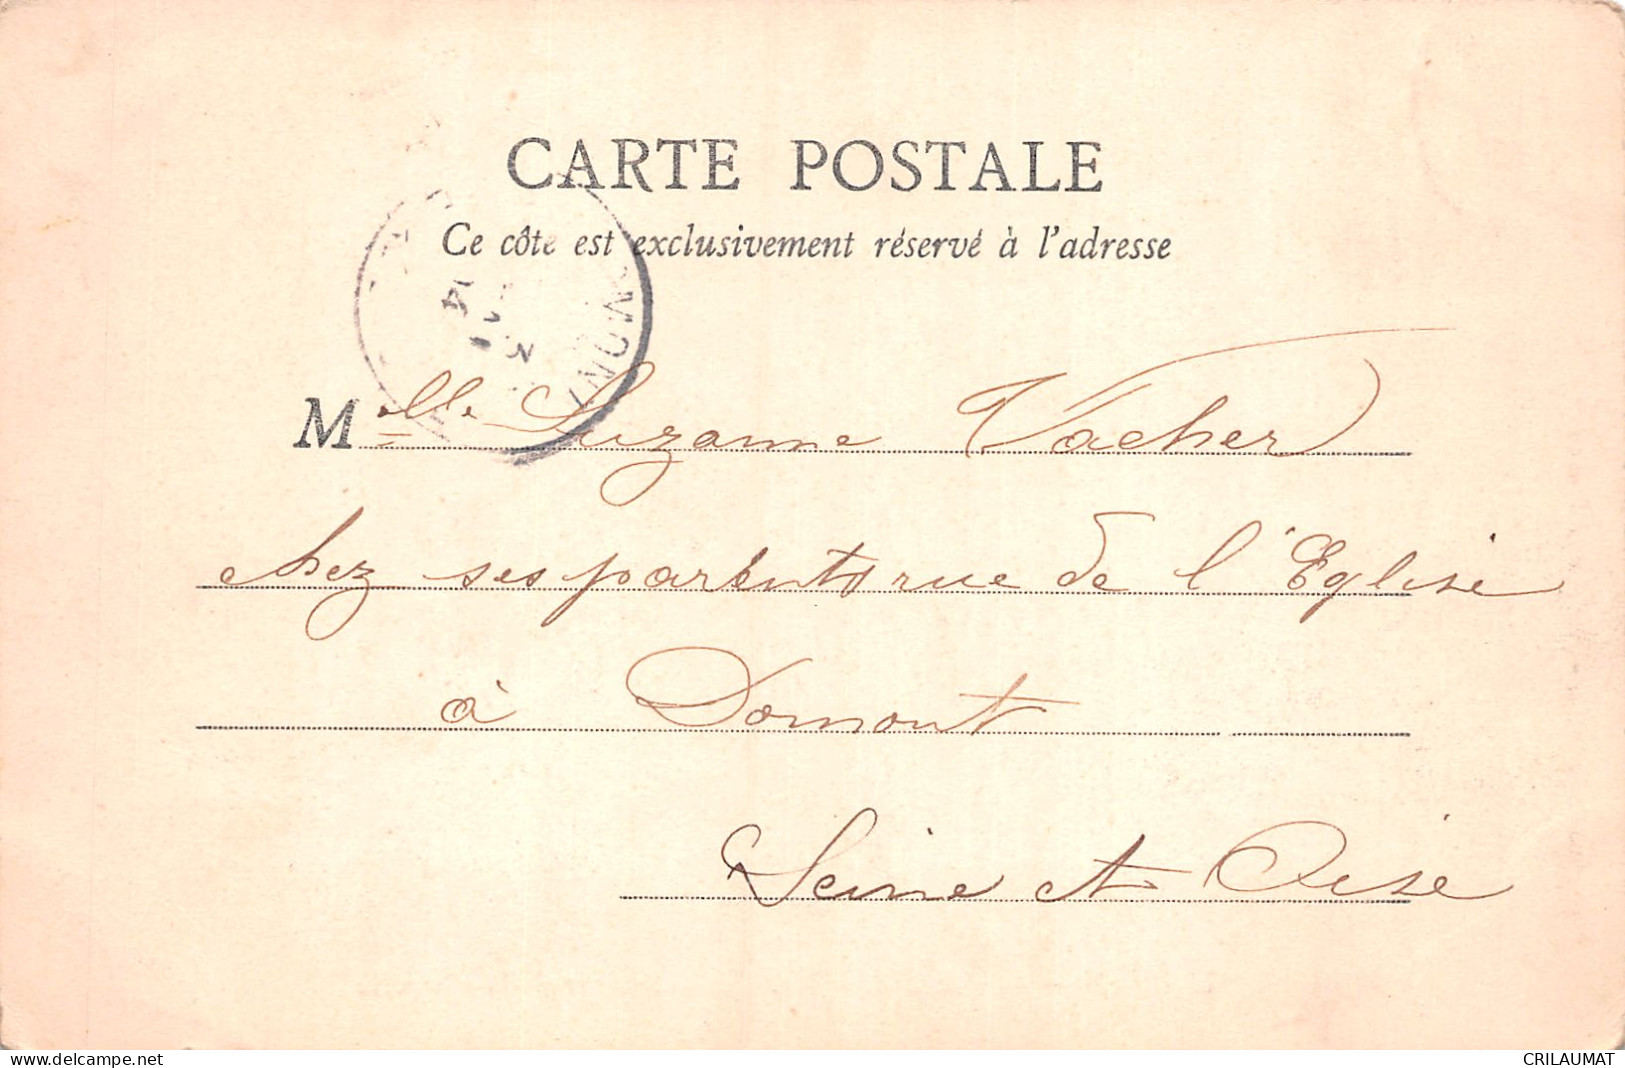 CARTE POSTALE
Ce côté est exclusivement réservé à l'adresse
Mlle Suzanne Vacher
chez ses parents rue de l'Eglise
à Domont
Seine et Oise
www.delcampe.net
CRILAUMAT